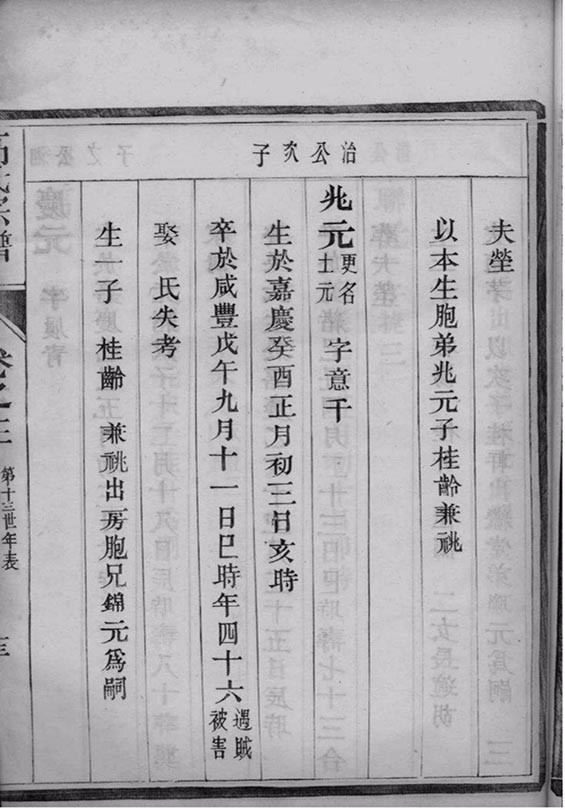 夫塋
以本生胞弟兆元子桂齡兼祧
治公次子
兆元 更名士元 字意千
生於嘉慶癸酉正月初三日亥時
卒於咸豐戊午九月十一日巳時年四十六 遇賊被害
娶 氏失考
生一子 桂齡 兼祧出房胞兄錦元爲嗣
氏宗譜
卷之三
第十三世年表